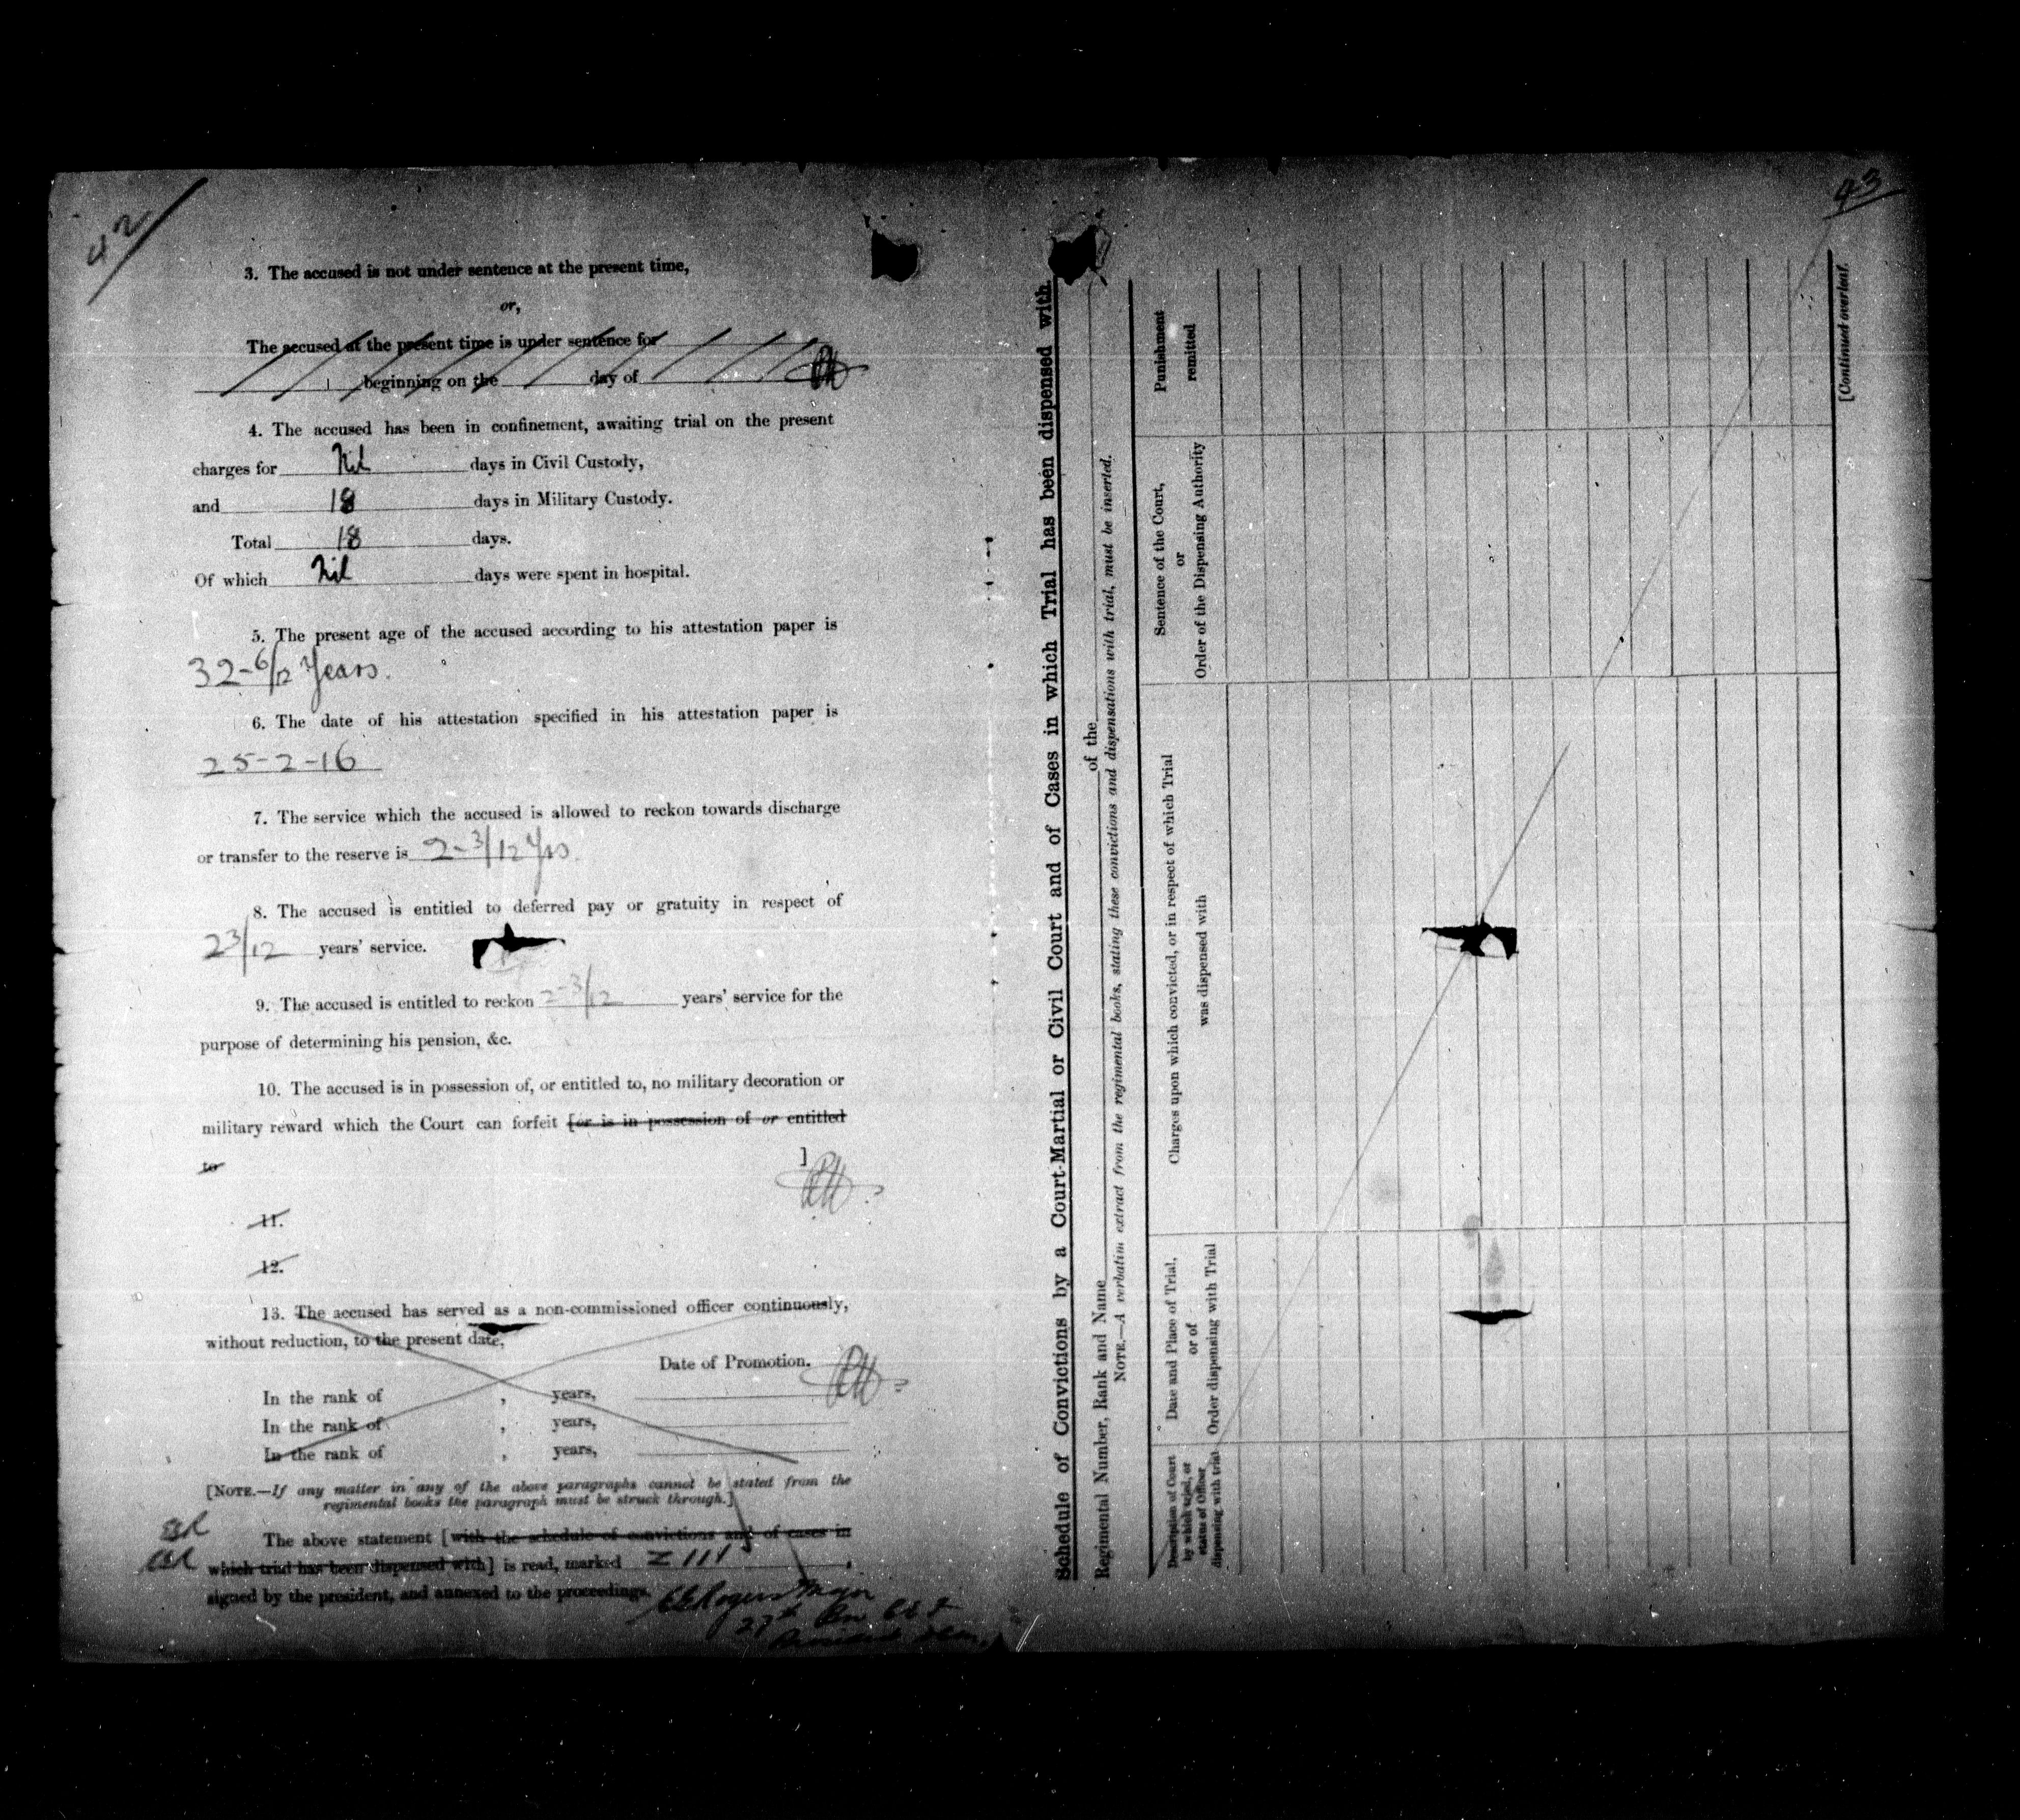 42
3. The accused is not under sentence at the present time,
or,
The accused at the present time is under sentence for
beginning on the day of
4. The accused has been in confinement, awaiting trial on the present
charges for Nil days in Civil Custody,
and 18 days in Military Custody.
Total 18 days.
Of which Nil days were spent in hospital.
5. The present age of the accused according to his attestation paper is
32-6/12 Years.
6. The date of his attestation specified in his attestation paper is
25-2-16
7. The service which the accused is allowed to reckon towards discharge
or transfer to the reserve is 2-3/12 Yrs.
8. The accused is entitled to deferred pay or gratuity in respect of
2 3/12 years' service.
9. The accused is entitled to reckon 2-3/12 years' service for the
purpose of determining his pension, &c.
10. The accused is in possession of, or entitled to, no military decoration or
military reward which the Court can forfeit [or is in possession of or entitled
to ]
11.
12.
13. The accused has served as a non-commissioned officer continuously,
without reduction, to the present date,
Date of Promotion.
In the rank of , years,
In the rank of , years,
In the rank of , years,
[NOTE.—If any matter in any of the above paragraphs cannot be stated from the
regimental books the paragraph must be struck through.]
The above statement [with the schedule of convictions and of cases in
which trial has been dispensed with] is read, marked Z 111 ,
signed by the president, and annexed to the proceedings.
Rogers Major
27th Bn
43
Schedule of Convictions by a Court-Martial or Civil Court and of Cases in which Trial has been dispensed with.
Regimental Number, Rank and Name of the
NOTE.—A verbatim extract from the regimental books, stating these convictions and dispensations with trial, must be inserted.
Description of Court
by which tried, or
status of Officer
dispensing with trial
Date and Place of Trial,
or of
Order dispensing with Trial
Charges upon which convicted, or in respect of which Trial
was dispensed with
Sentence of the Court,
or
Order of the Dispensing Authority
Punishment
remitted
[Continued overleaf.